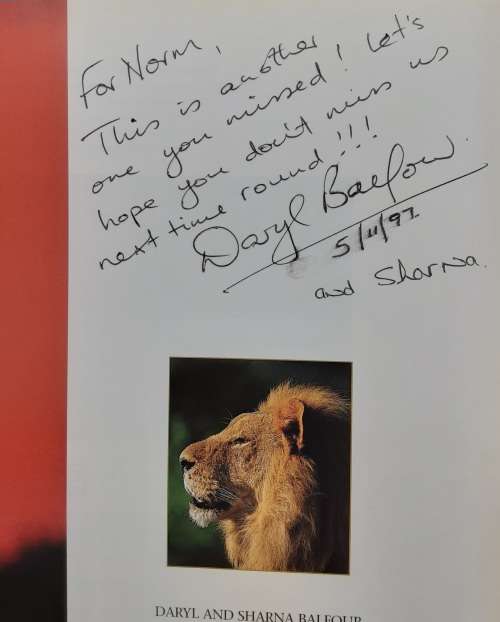 For Norm,
This is another
one you missed! Let's
hope you don't miss us
next time round!!!
Daryl Balfour.
5/11/97
and Sharna.
DARYL AND SHARNA BALFOUR